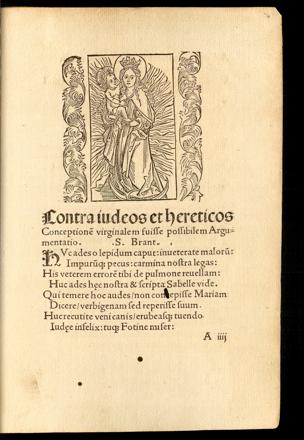 Contra iudeos et hereticos
Conceptionē virginalem fuisse possibilem Argu=
mentatio. .S. Brant.
HVc ades o lepidum caput: inueterate malorū:
Impurūq; pecus: carmina nostra legas:
His veterem errorē tibi de pulmone reuellam:
Huc ades hęc nostra & scripta Sabelle vide.
Qui temere hoc audes/non concepisse Mariam
Dicere/verbigenam sed reperisse suum.
Huc recutite veni canis/erubeasq; tuendo
Iudęe infelix: tuq; Fotine miser:
A iiij